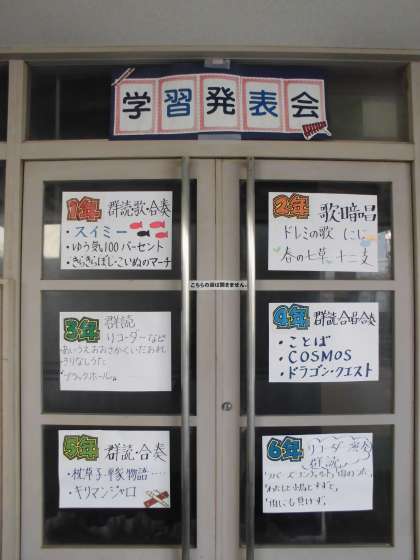 学習発表会
1年 群読歌・合奏
・スイミー
・ゆう気100パーセント
・きらきらぼし・こいぬのマーチ
2年 歌・暗唱
ドレミの歌 にじ
春の七草 十二支
こちらの扉は開きません。
3年 群読
リコーダーなど
あいうえおおさかくいだおれ
ブラックホール。
4年 群読合唱合奏
・ことば
・COSMOS
・ドラゴン・クエスト
5年 群読・合奏
・枕草子・平家物語……
・キリマンジャロ
6年 リコーダー 演奏
群読
「雨にも負けず」